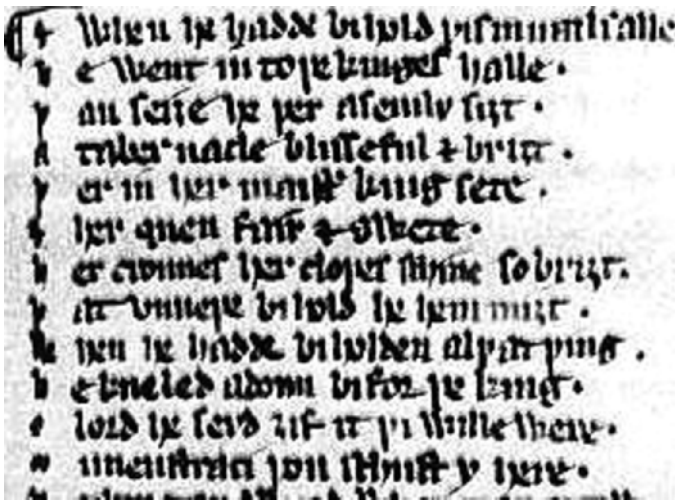 & When he hadde bihold þis meruails alle
H e went in to þe kinges halle .
Þ an seiȝe he þer a semly siȝt .
A tabernacle blisseful & briȝt .
Þ er in her maister king sete .
& her quen fair & swete .
H er crounes her cloþes schine so briȝt .
Þ at vnneþe bihold he hem miȝt .
W hen he hadde biholden al þat þing .
H e kneled adoun bifor þe king .
O lord he seyd ȝif it þi wille were .
M i menstraci þou schust y here .